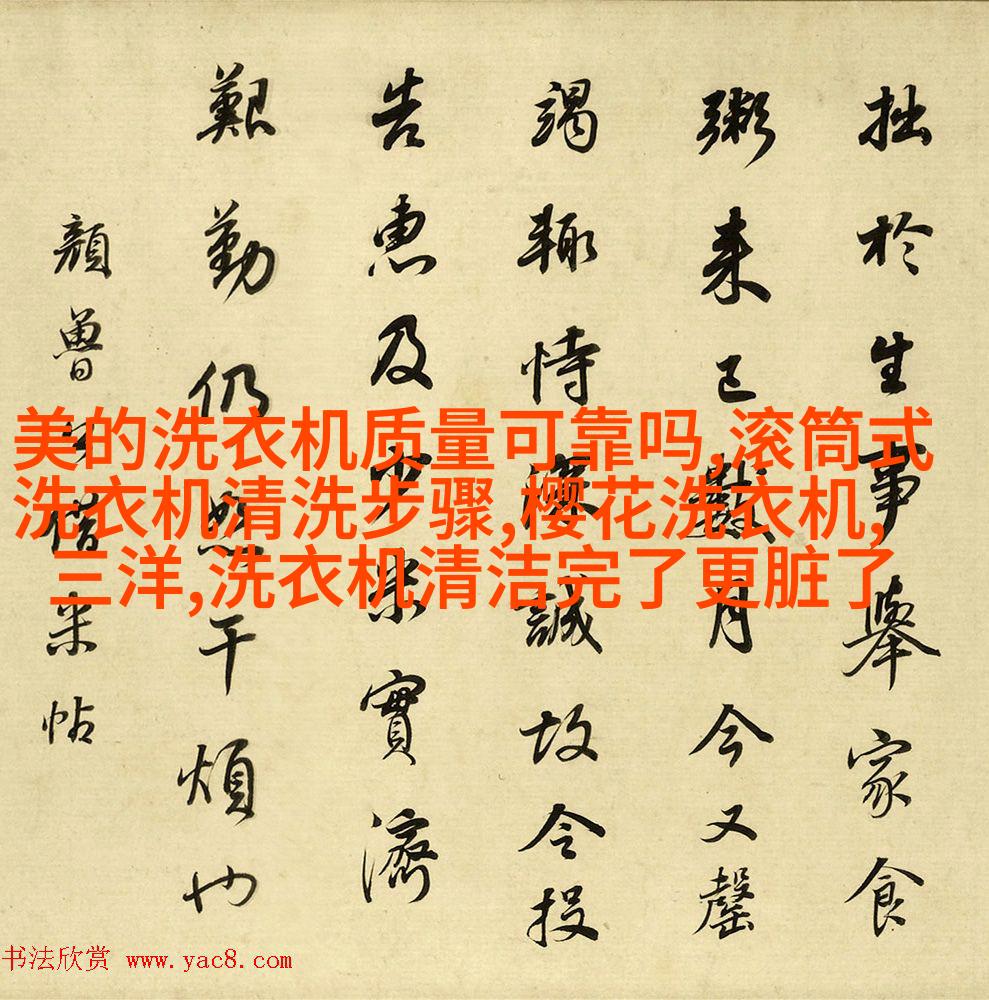 拙於生事舉家食
粥来已數月今又罄
竭輒恃深誠故令投
告惠及少米實濟
艱勤仍恕干煩也
顏魯公借米帖
美的洗衣机质量可靠吗,滚筒式
洗衣机清洗步骤,樱花洗衣机,
三洋,洗衣机清洁完了更脏了
书法欣赏 www.yac8.com